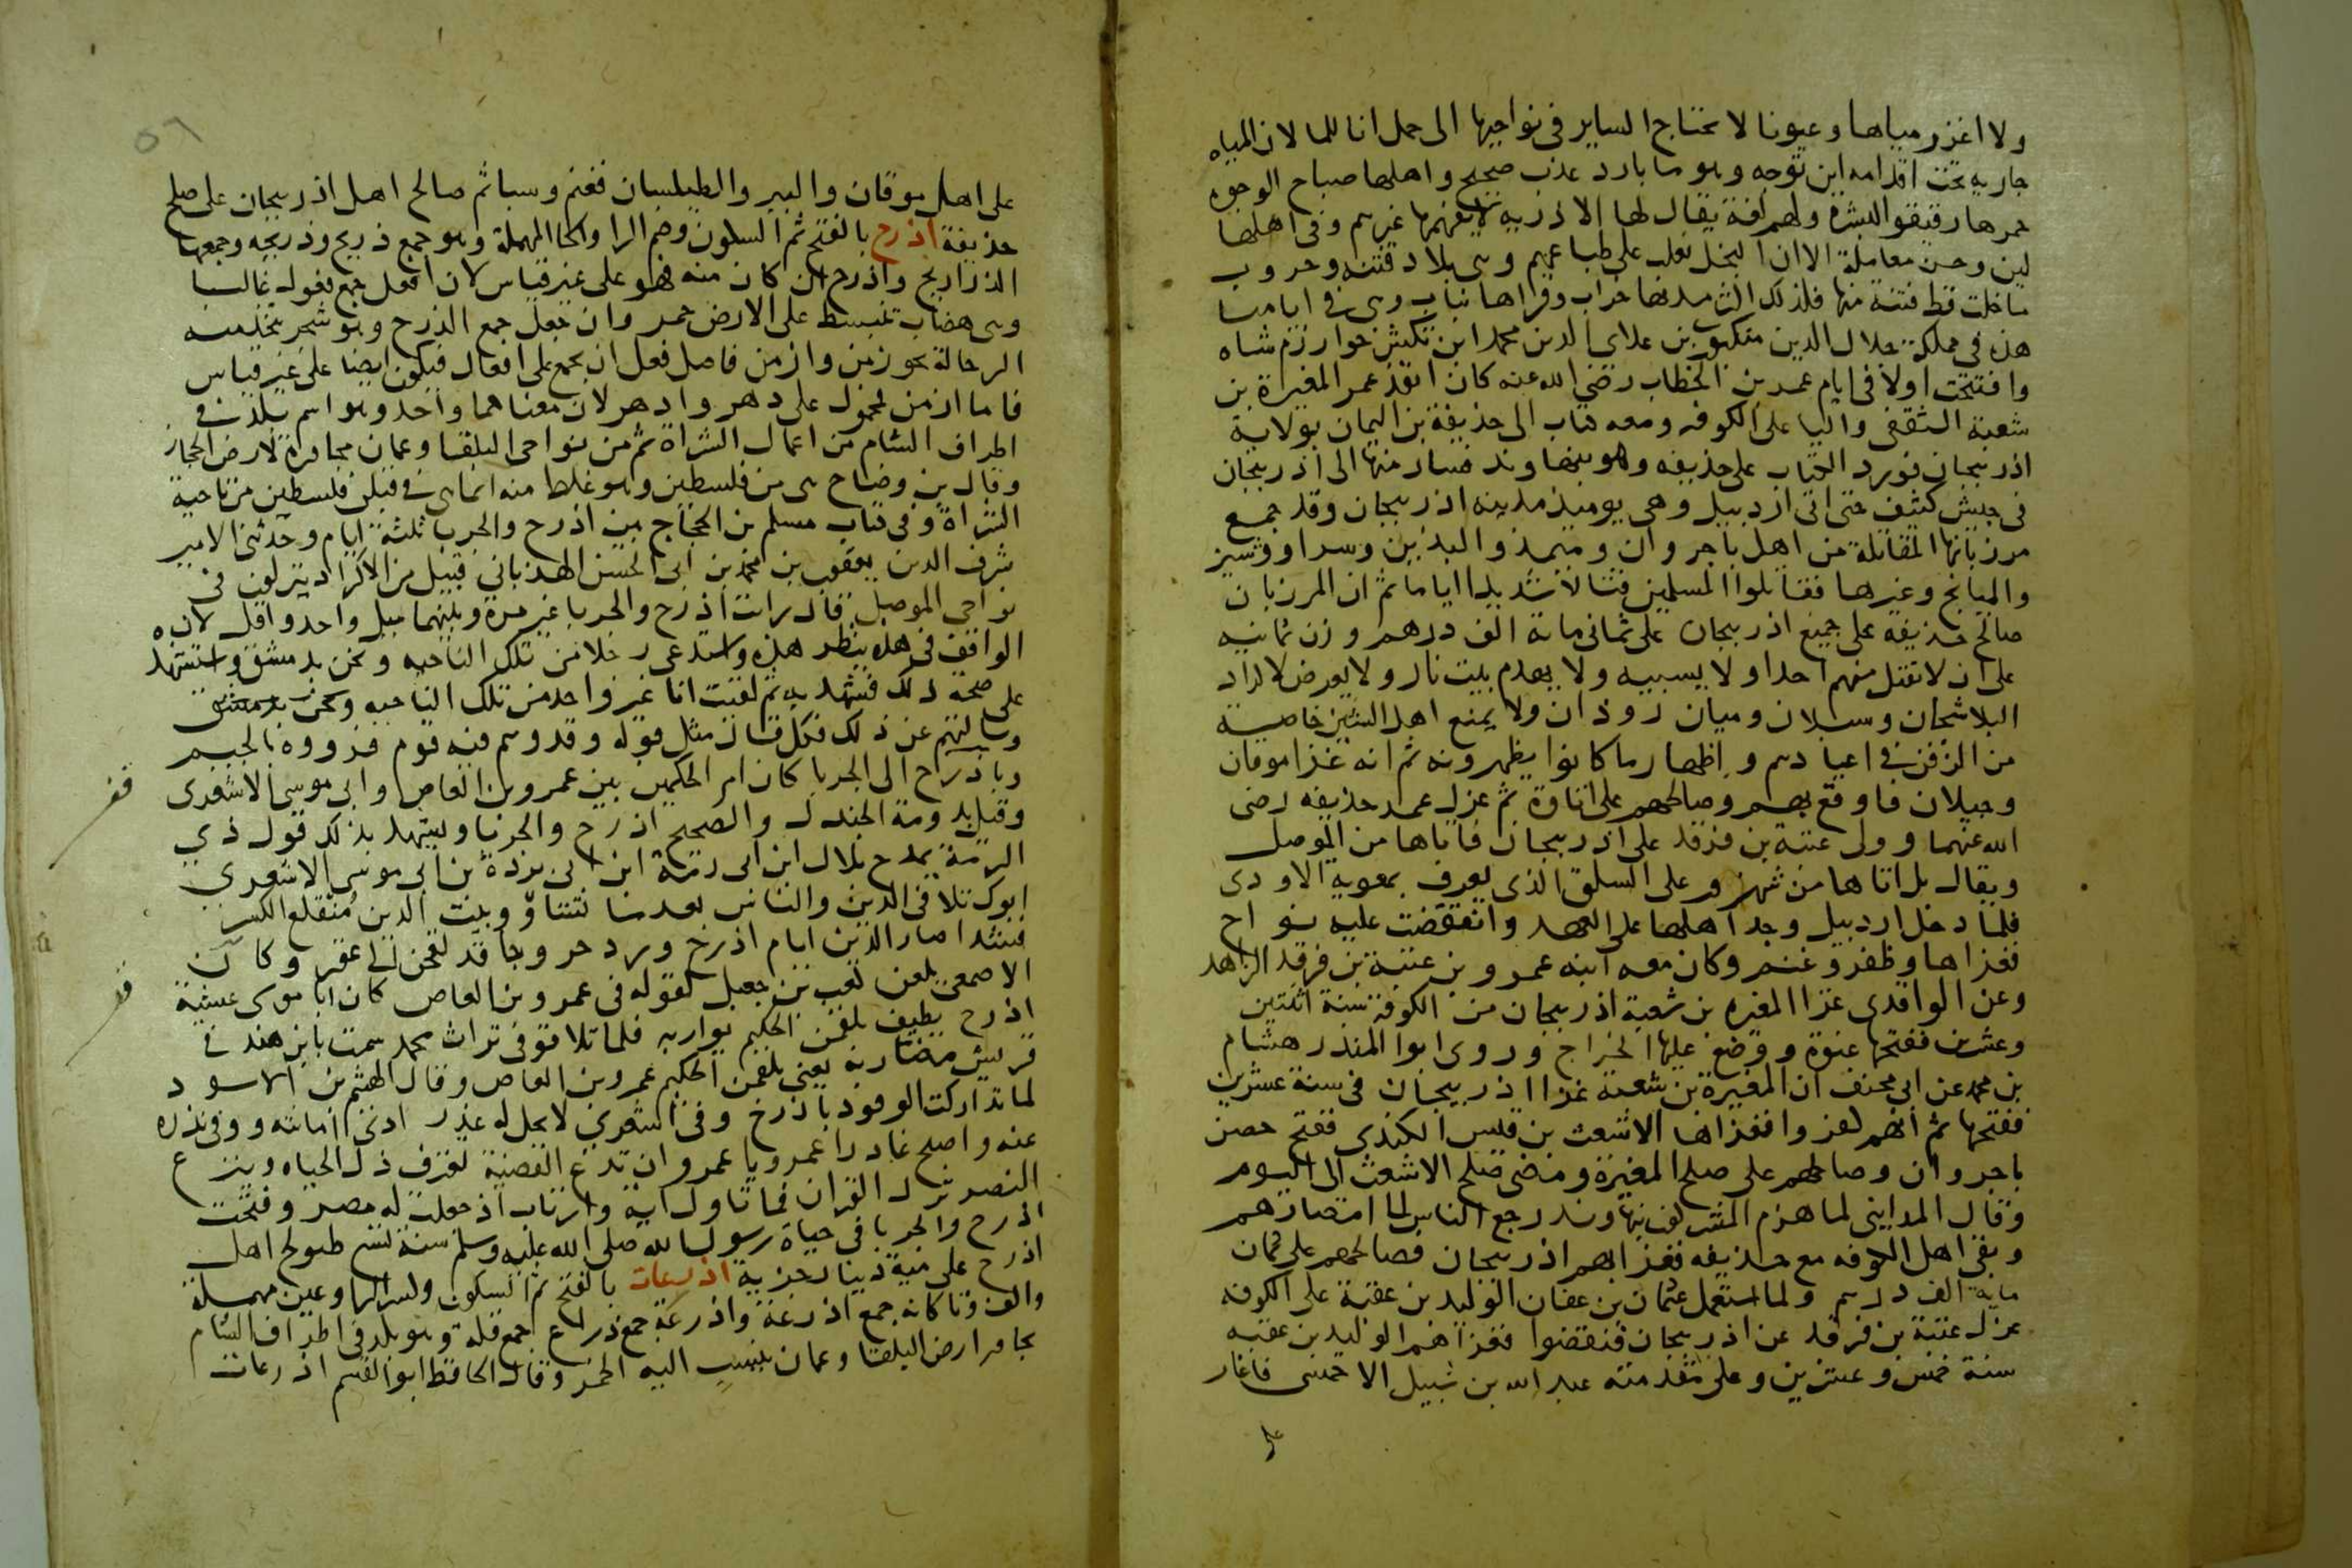 ولا اغزر مياها وعيونا لا يحتاج الساير في نواحيها الى حمل انا للما لان المياه
جاريه تحت اقدامه اين توجه وهو ما بارد عذب صحيح واهلها صباح الوجوه
حمرها رقيقوا البشره ولهم لغة يقال لها الاذريه لا يفهمها غيرهم وفي اهلها
لين وحسن معاملة الا ان البخل يغلب على طباعهم وهي بلاد فتنه وحروب
ما خلت قط فتنة منها فلذلك اكثر مدنها خراب وقراها يباب وهي في ايامنا
هذه في مملكة جلال الدين منكبرني بن علاي الدين محمد ابن تكيش خوارزم شاه
وافتتحت اولا في ايام عمر بن الخطاب رضي الله عنه كان انفذ عمر المغيرة بن
شعبة الثقفي واليا على الكوفه ومعه كتاب الى حذيفة بن اليمان بولاية
اذربيجان فورد الكتاب على حذيفه وهو بنهاوند فسار منها الى اذربيجان
في جيش كثيف حتى اتى اردبيل وهي يوميذ مدينه اذربيجان وقد جمع
مرزبانها المقاتلة من اهل باجروان وميمذ والبذين وسراو وشيز
والميانج وغيرها فقاتلوا المسلمين قتالا شديدا اياما ثم ان المرزبان
صالح حذيفه على جميع اذربيجان على ثمانى ماية الف درهم وزن ثمانيه
على ان لا يقتل منهم احدا ولا يسبيه ولا يهدم بيت نار ولا يعرض لاكراد
البلاشجان وسبلان وميان روذان ولا يمنع اهل الشيز خاصية
من الزفن في اعيادهم واظهار ما كانوا يظهرونه ثم انه غزا موقان
وجيلان فاوقع بهم وصالحهم على اتاوة ثم عزل عمر حذيفه رضي
الله عنهما وولى عتبة بن فرقد على اذربيجان فاتاها من الموصل
ويقال بل اتاها من شهرزور على السلق الذي يعرف بمعويه الاودي
فلما دخل اردبيل وجد اهلها على العهد وانتقضت عليه نواح
فغزاها وظفر وغنم وكان معه ابنه عمرو بن عتبة بن فرقد الزاهد
وعن الواقدي غزا المغيره بن شعبة اذربيجان من الكوفة سنة اثنتين
وعشرين ففتحها عنوة ووضع عليها الخراج وروى ابوا المنذر هشام
بن محمد عن ابي مخنف ان المغيرة بن شعبة غزا اذربيجان في سنة عشرين
ففتحها ثم انهم كفروا فغزاها الاشعث بن قيس الكندي ففتح حصن
باجروان وصالحهم على صلح المغيرة ومضى صلح الاشعث الى اليوم
وقال المدايني لما هزم المشركون بنهاوند رجع الناس لما امصارهم
وبقي اهل الكوفه مع حذيفه فغزا بهم اذربيجان فصالحهم على ثمان
ماية الف درهم ولما استعمل عثمان بن عفان الوليد بن عقبة على الكوفه
عزل عتبة بن فرقد عن اذربيجان فنقضوا فغزاهم الوليد بن عقبه
سنة خمس وعشرين وعلى مقدمته عبد الله بن شبيل الاحمسي فاغار
على
٥٦
على اهل موقان والببر والطيلسان فغنم وسبا ثم صالح اهل اذربيجان على صلح
حذيفة اذرح بالفتح ثم السكون وضم الرا والحا المهملة وهو جمع ذريح وذريحه وجمعها
الذراريح واذرح ان كان منه فهو على غير قياس لان افعل جمع فعول غالبا
وهي هضاب تنبسط على الارض حمر وان جعل جمع الذرح وهو شجر يتخذ منه
الرحالة نحو زمن وازمن فاصل فعل ان يجمع على افعال فيكون ايضا على غير قياس
فاما ازمن فمحمول على دهر وادهر لان معناهما واحد وهو اسم بلد في
اطراف الشام من اعمال الشراة ثم من نواحي البلقا وعمان مجاورة لارض الحجاز
وقال بن وضاح هي من فلسطين وهو غلط منه انما هي في قبلي فلسطين من ناحية
الشراة وفي كتاب مسلم بن الحجاج بين اذرح والجربا ثلثة ايام وحدثني الامير
شرف الدين يعقوب بن محمد بن ابي الحسن الهذباني قبيل من الاكراد ينزلون في
نواحي الموصل قال رايت اذرح والجربا غير مرة وبينهما ميل واحد واقل لانه
الواقف في هذه ينظر هذه واستدعى رجلا من تلك الناحيه ونحن بدمشق واستشهد
على صحة ذلك فشهد به ثم لقيت انا غير واحد من تلك الناحيه ونحن بدمشق
وسالتهم عن ذلك فكل قال مثل قوله وقد وهم فيه قوم فرووه بالجيم
وباذرح الى الجربا كان امر الحكمين بين عمرو بن العاص وابي موسى الاشعري
وقيل بدومة الجندل والصحيح اذرح والجربا ويشهد بذلك قول ذي
الرمة يمدح بلال ابن ابي بردة بن ابي موسى الاشعري
ابوك تلافى الدين والناس بعدما تشاؤ وبيت الدين منقلع الكسر
فشد اصار الدين ايام اذرح ورد حروبا قد لقحن الى عقر وكان
الاصمعي يلعن كعب بن جعيل لقوله في عمرو بن العاص كان ابا موسى عشية
اذرح يطيف بلقمن الحكيم يواربه فلما تلاقوا في تراث محمد سمت بابن هند في
قريش مضاربه يعني بلقمن الحكيم عمرو بن العاص وقال الهثيم بن الاسود
لما تداركت الوفود باذرح وفي اشعري لا يحل له غدر ادى امانته ووفى نذره
عنه واصبح غادرا عمرو يا عمرو ان تدع القضية تعرف ذل الحياه وينزع
النصر ترك القران فما تاول اية وارتاب اذ جعلت له مصر وفتحت
اذرح والجربا في حياة رسول الله صلى الله عليه وسلم سنة تسع صولح اهل
اذرح على مية دينار جزية اذرعات بالفتح ثم السكون وكسر الرا وعين مهملة
والف وتا كانه جمع اذرعة واذرعة جمع ذراع جمع قلة وهو بلد في اطراف الشام
يجاور ارض البلقا وعمان ينسب اليه الخمر وقال الحافظ ابو القسم اذرعات